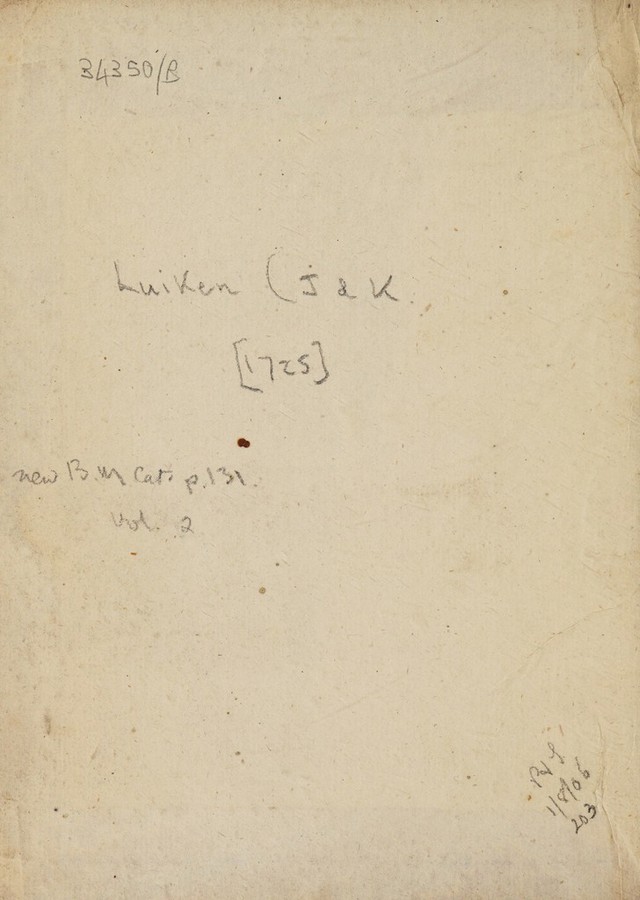 34350/B
Luiken (J & K.
[1725]
new B.M Cat. p.131.
Vol. 2
1/8/06
203